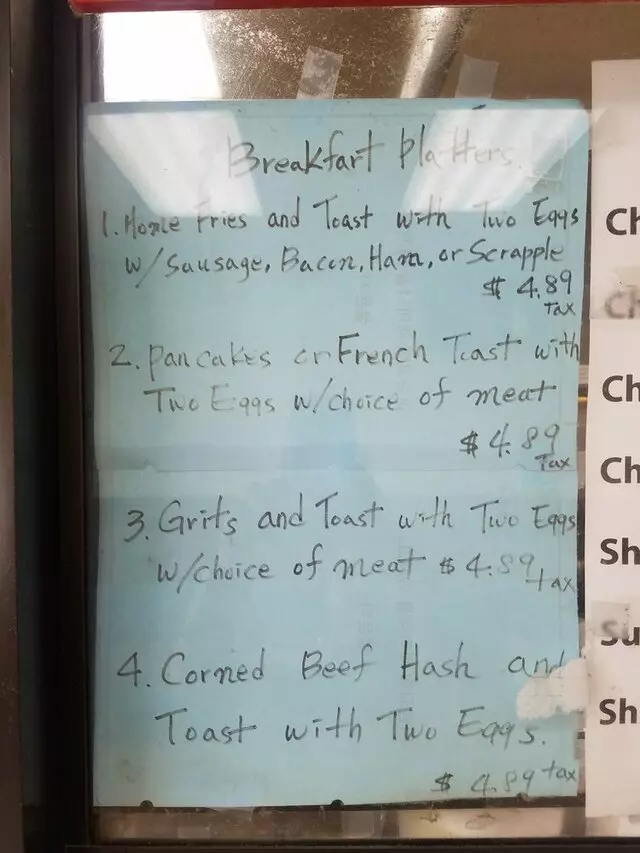 Breakfart Platters.
1. Home Fries and Toast with Two Eggs
w/Sausage, Bacon, Ham, or Scrapple
$ 4.89
Tax
2. Pancakes or French Toast with
Two Eggs w/choice of meat
$ 4.89
Tax
3. Grits and Toast with Two Eggs
w/choice of meat $ 4.89
tax
4. Corned Beef Hash and
Toast with Two Eggs.
$ 4.89 tax
Ch
Ch
Ch
Ch
Sh
Su
Sh